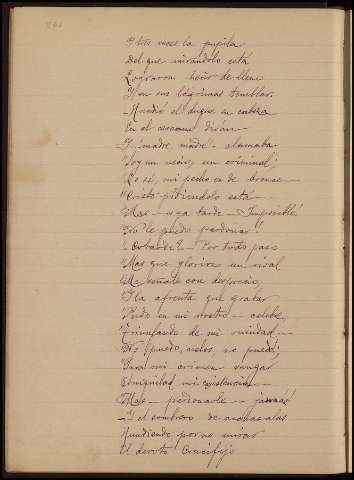 Y tres veces la pupila
Del que mirándolo está
Lograron herir de lleno
Con sus lágrimas temblar.
Hundió el duque su cabeza
En el
Y ¡madre, madre! clamaba.
Soy un un criminal;
Lo sé, mi pecho es de bronce
Cristo pidiéndolo está
Mas ya tarde Imposible!
No le puedo perdonar!
Cobarde? Por todos pase
Mas que gloríese un rival
Me señale con desprecio,
Y la afrenta que grabar
Pudo en mi rostro celebre,
Triunfando de mi ruindad
No puedo, no, no puedo;
Para mi crimen vengar
Iniquidad mi existencia
Mas perdonarle jamás!
Y el sombrero de anchas alas
Hundiendo por no mirar
El devoto Crucifijo